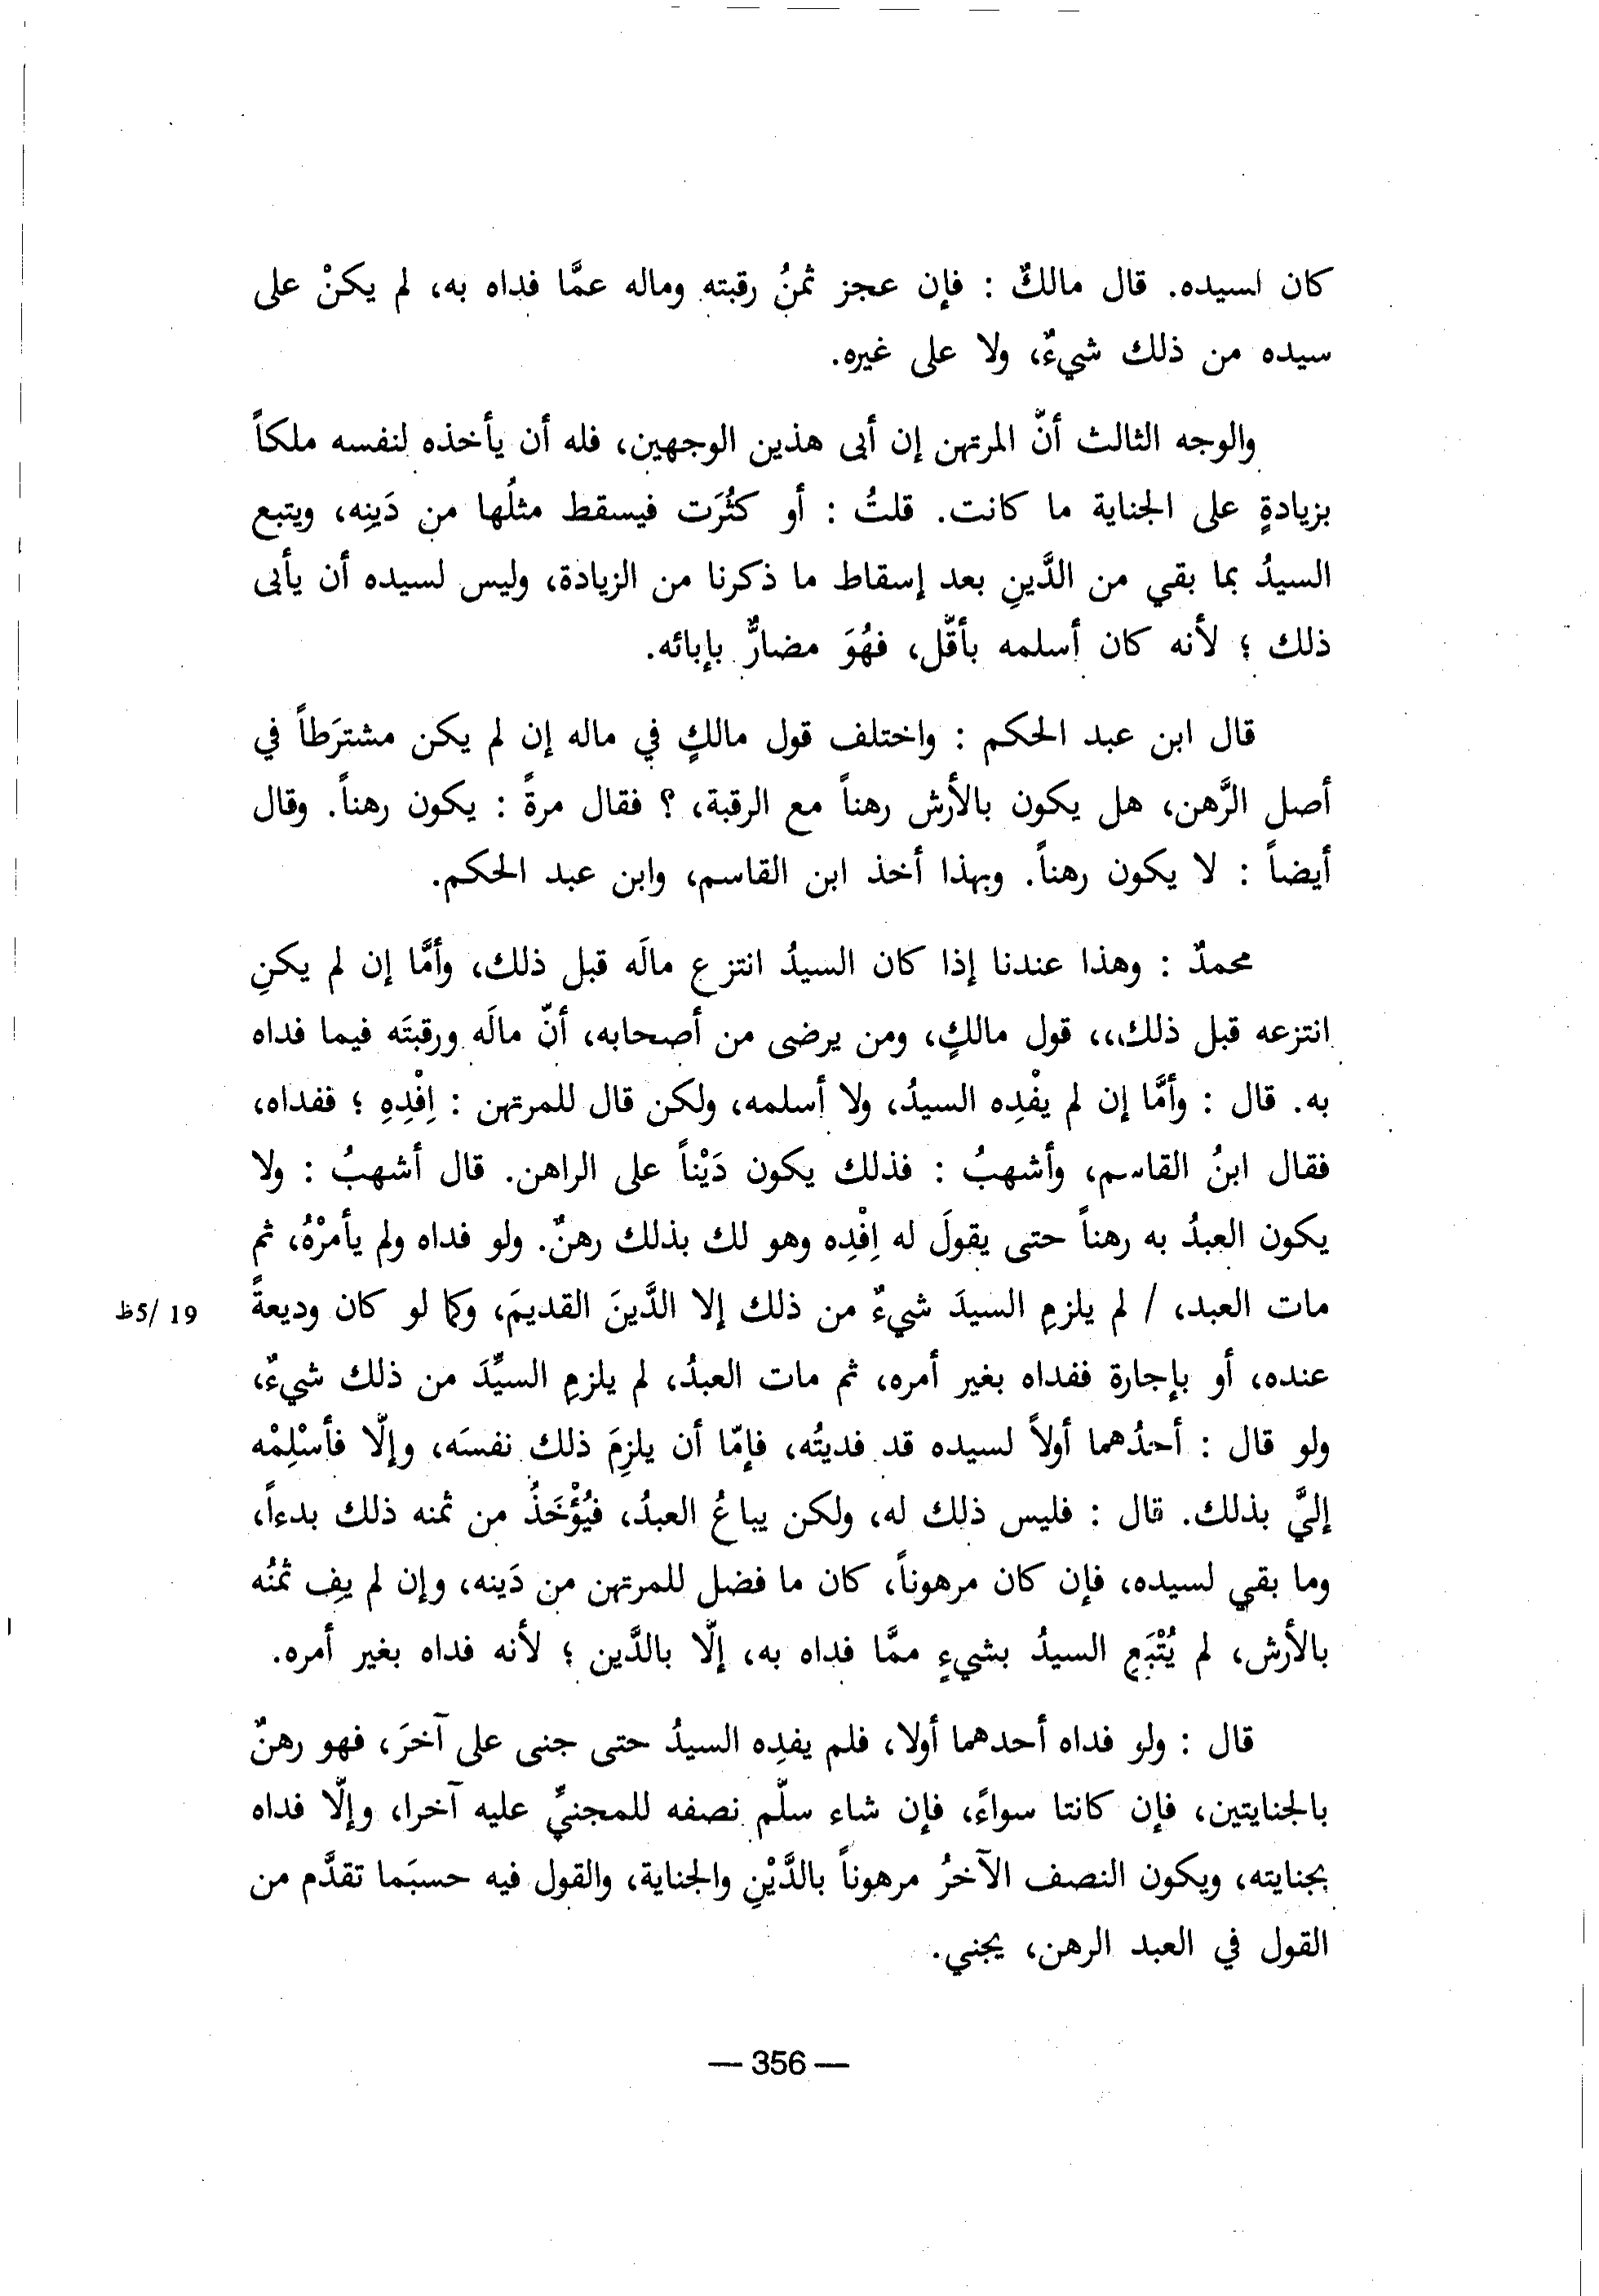 كان لسيده. قال مالكٌ : فإن عجز ثمنُ رقبته وماله عمَّا فداه به، لم يكنْ على
سيده من ذلك شيءٌ، ولا على غيره.
والوجه الثالث أنّ المرتهن إن أبى هذين الوجهين، فله أن يأخذه لنفسه ملكاً
بزيادةٍ على الجناية ما كانت. قلتُ : أو كثُرَت فيسقط مثلُها من دَينِه، ويتبع
السيدُ بما بقي من الدَّينِ بعد إسقاط ما ذكرنا من الزيادة، وليس لسيده أن يأبى
ذلك ؛ لأنه كان أسلمه بأقّل، فهُوَ مضارٌّ بإبائه.
قال ابن عبد الحكم : واختلف قول مالكٍ في ماله إن لم يكن مشترَطاً في
أصل الرَّهن، هل يكون بالأرش رهناً مع الرقبة، ؟ فقال مرةً : يكون رهناً. وقال
أيضاً : لا يكون رهناً. وبهذا أخذ ابن القاسم، وابن عبد الحكم.
محمدٌ : وهذا عندنا إذا كان السيدُ انتزع مالَه قبل ذلك، وأمَّا إن لم يكنِ
انتزعه قبل ذلك،،، قول مالكٍ، ومن يرضى من أصحابه، أنّ مالَه ورقبتَه فيما فداه
به. قال : وأمَّا إن لم يفْدِه السيدُ، ولا أسلمه، ولكن قال للمرتهن : اِفْدِهِ ؛ ففداه،
فقال ابنُ القاسم، وأشهبُ : فذلك يكون دَيْناً على الراهن. قال أشهبُ : ولا
يكون العبدُ به رهناً حتى يقولَ له اِفْدِه وهو لك بذلك رهنٌ. ولو فداه ولم يأمرْهُ، ثم
مات العبد، / لم يلزمِ السيدَ شيءٌ من ذلك إلا الدَّينَ القديمَ، وكما لو كان وديعةً
19 /5ظ
عنده، أو بإجارة ففداه بغير أمره، ثم مات العبدُ، لم يلزمِ السيِّدَ من ذلك شيءٌ،
ولو قال : أحدُهما أولاً لسيده قد فديتُه، فإمّا أن يلزِمَ ذلك نفسَه، وإلّا فأسْلِمْه
إليَّ بذلك. قال : فليس ذلك له، ولكن يباعُ العبدُ، فيُؤْخَذُ من ثمنه ذلك بدءاً،
وما بقي لسيده، فإن كان مرهوناً، كان ما فضل للمرتهن من دَينه، وإن لم يفِ ثمنُه
بالأرش، لم يُتْبَعِ السيدُ بشيءٍ ممَّا فداه به، إلّا بالدَّين ؛ لأنه فداه بغير أمره.
قال : ولو فداه أحدهما أولا، فلم يفدِه السيدُ حتى جنى على آخرَ، فهو رهنٌ
بالجنايتين، فإن كانتا سواءً، فإن شاء سلّم نصفه للمجنيِّ عليه آخرا، وإلّا فداه
بجنايته، ويكون النصف الآخرُ مرهوناً بالدَّيْنِ والجناية، والقول فيه حسبَما تقدَّم من
القول في العبد الرهن، يجني.
— 356 —